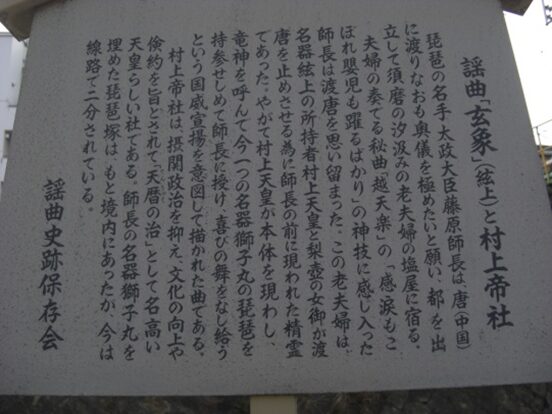 謡曲「玄象」(絃上)と村上帝社
琵琶の名手、太政大臣藤原師長は、唐(中国)
に渡りなおも奥儀を極めたいと願い、都を出
立して須磨の汐汲みの老夫婦の塩屋に宿る。
夫婦の奏てる秘曲「越天楽」の「感涙もこ
ぼれ嬰児も躍るばかり」の神技に感じ入った
師長は渡唐を思い留まった。この老夫婦は、
名器絃上の所持者村上天皇と梨壺の女御が渡
唐を止めさせる為に師長の前に現われた精霊
であった。やがて村上天皇が本体を現わし、
竜神を呼んで今一つの名器獅子丸の琵琶を
持参せしめて師長に授け、喜びの舞をなし給う
という国威宣揚を意図して描かれた曲である。
村上帝社は、摂関政治を抑え、文化の向上や
倹約を旨とされて、天暦の治」として名高い
天皇らしい社である。師長の名器獅子丸を
埋めた琵琶塚は、もと境内にあったが、今は
線路で二分されている。
謡曲史跡保存会